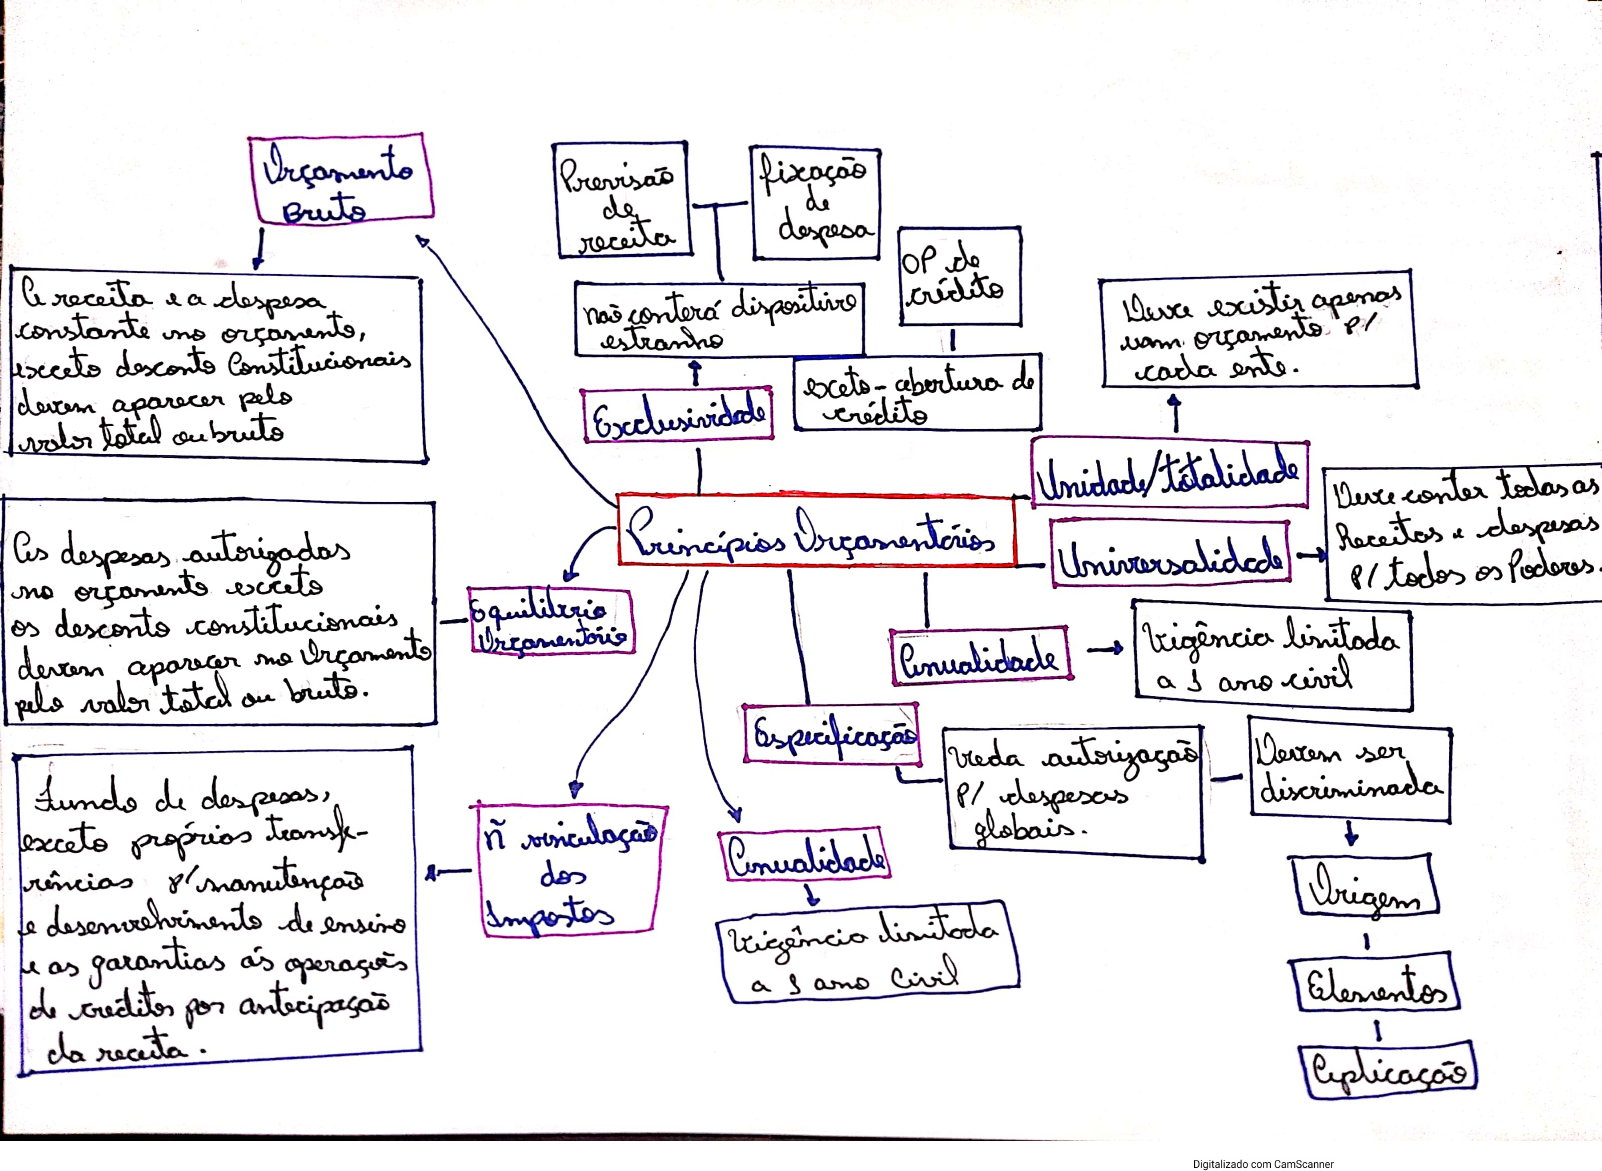 Orçamento
Bruto
A receita e a despesa
constante no orçamento,
exceto desconto Constitucionais
devem aparecer pelo
valor total ou bruto
Previsão
de
receita
fixação
de
despesa
não conterá dispositivo
estranho
Exclusividade
OP de
crédito
exceto - abertura de
crédito
Deve existir apenas
um orçamento p/
cada ente.
Unidade/totalidade
Universalidade
Deve conter todas as
Receitas e despesas
p/ todos os Poderes.
Princípios Orçamentários
As despesas autorizadas
no orçamento exceto
os desconto constitucionais
devem aparecer no Orçamento
pelo valor total ou bruto.
Equilibrio
Orçamentário
Anualidade
Vigência limitada
a 1 ano civil
Especificação
Veda autorização
p/ despesas
globais.
Devem ser
discriminada
Origem
Elementos
Aplicação
Fundo de despesas,
exceto próprios transfe-
rências p/ manutenção
e desenvolvimento de ensino
e as garantias ás operações
de créditos por antecipação
da receita.
ñ vinculação
dos
Impostos
Anualidade
Vigência limitada
a 1 ano Civil
Digitalizado com CamScanner